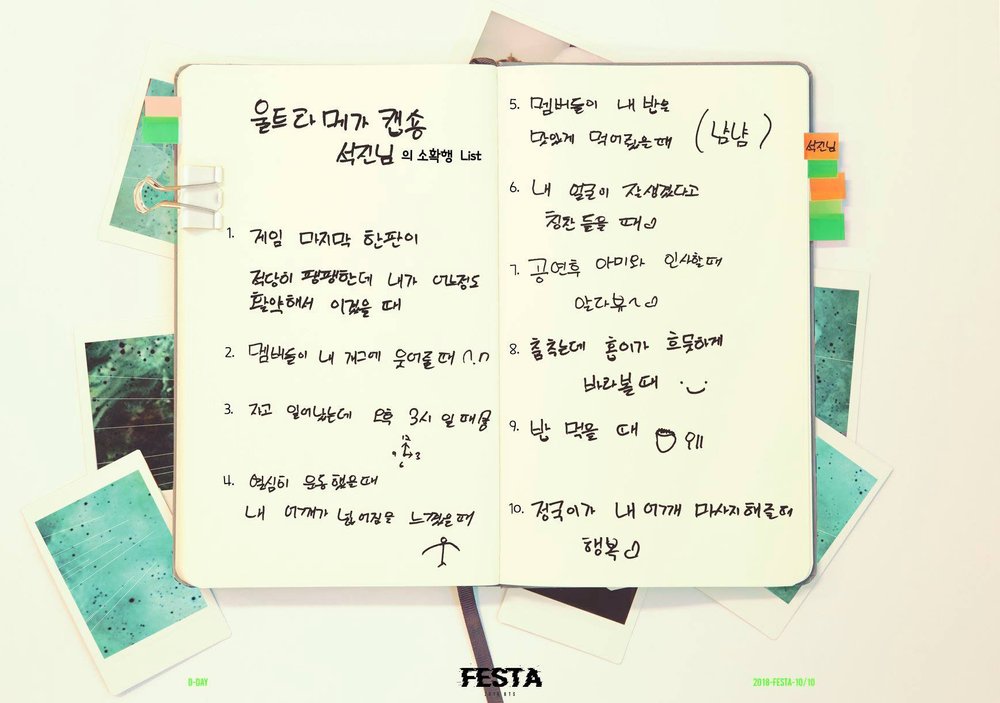 울트라 메가 캡숑
석진님의 소확행 List
1. 게임 마지막 한판이
적당히 팽팽한데 내가 어느정도
활약해서 이겼을 때
2. 멤버들이 내 개그에 웃어줄때 ^.^
3. 자고 일어났는데 오후 3시 일때
12
9 3
6
4. 열심히 운동했을때
내 어깨가 넓어짐을 느꼈을때
5. 멤버들이 내 밥을
맛있게 먹어줬을때 (냠냠)
6. 내 얼굴이 잘생겼다고
칭찬 들을 때♡
7. 공연후 아미와 인사할때
알라뷰~♡
8. 춤추는데 홉이가 흐뭇하게
바라볼때
9. 밥 먹을 때
10. 정국이가 내 어깨 마사지해줄때
행복♡
석진님
D-DAY
FESTA
2018 BTS
2018-FESTA-10/10